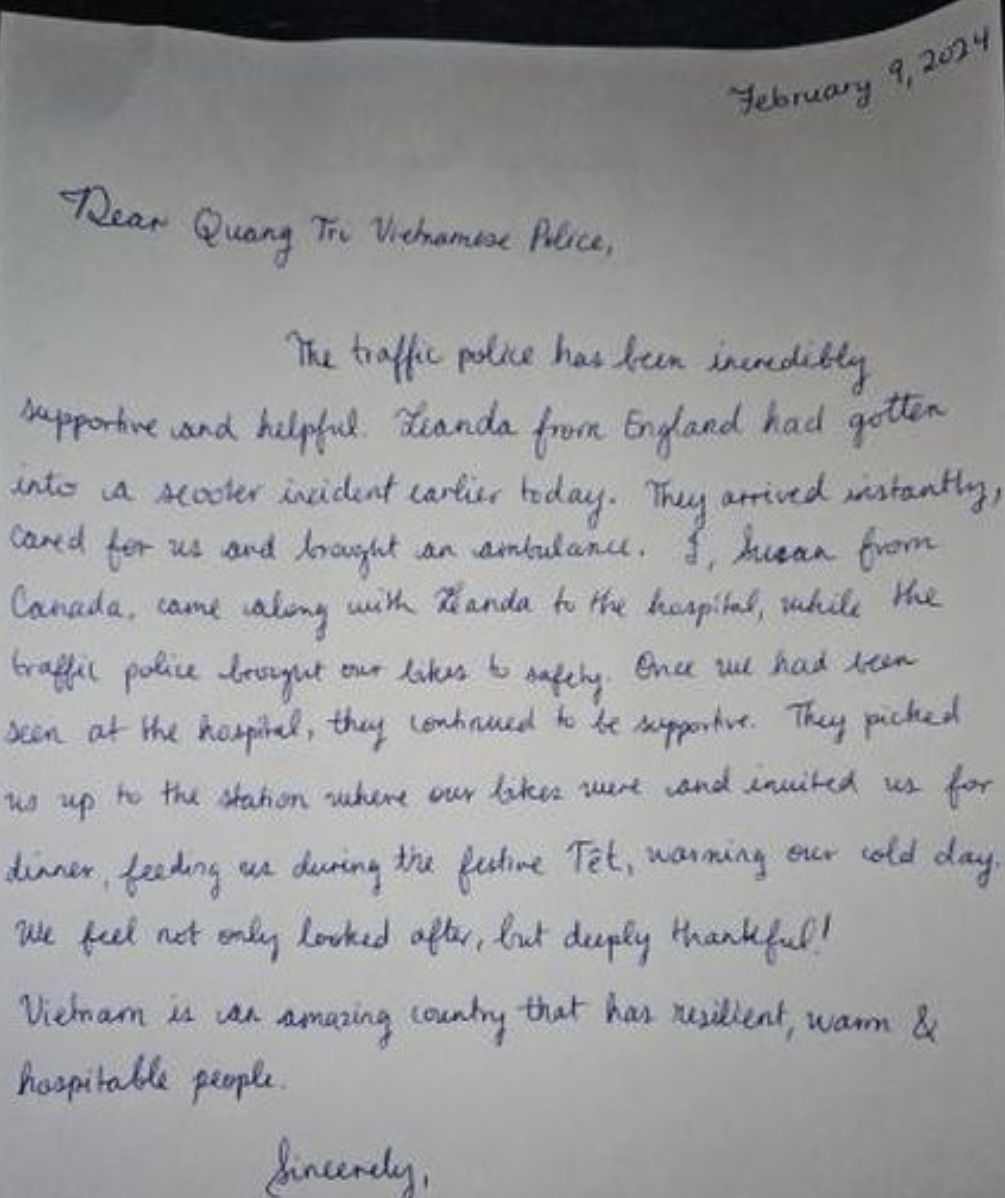 February 9, 2024
Dear Quang Tri Vietnamese Police,
The traffic police has been incredibly
supportive and helpful. Leanda from England had gotten
into a scooter incident earlier today. They arrived instantly,
cared for us and brought an ambulance. I, Susan from
Canada, came along with Leanda to the hospital, while the
traffic police brought our bikes to safety. Once we had been
seen at the hospital, they continued to be supportive. They picked
us up to the station where our bikes were and invited us for
dinner, feeding us during the festive Tết, warming our cold day.
We feel not only looked after, but deeply thankful!
Vietnam is an amazing country that has resilient, warm &
hospitable people.
Sincerely,